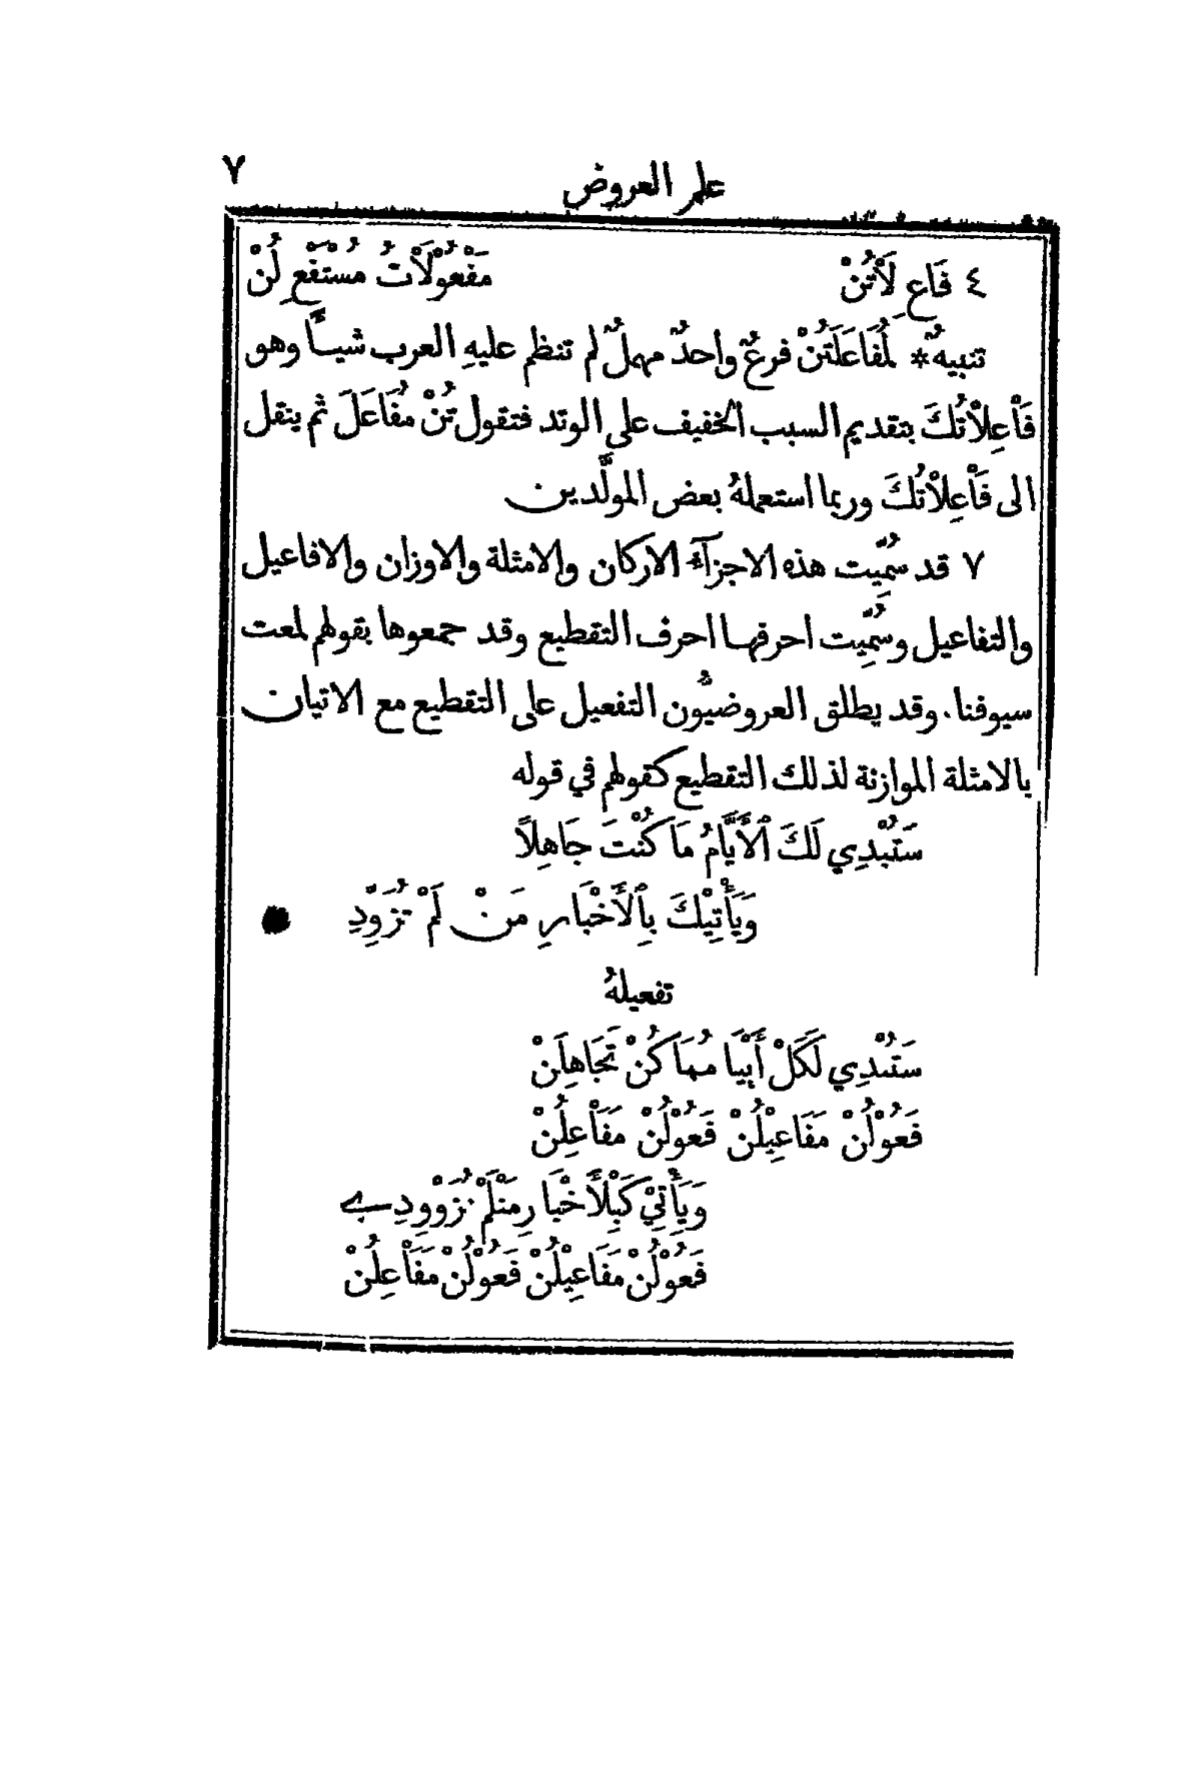 علم العروض ٧
٤ فَاعِ لَاْتُنْ مَفْعُوْلَاْتُ مُسْتَفْعِ لُنْ
تنبيهٌ* لِمُفَاعَلَتُنْ فرعٌ واحدٌ مهملٌ لم تنظم عليهِ العرب شيـأً وهو
فَاْعِلاْتُكَ بتقديم السبب الخفيف على الوتد فتقول تُنْ مُفَاعَلَ ثم ينقل
الى فَاْعِلاْتُكَ وربما استعملهُ بعض المولَّدين
٧ قد سُمِّيت هذه الاجزآء الاركان والامثلة والاوزان والافاعيل
والتفاعيل وسُمِّيت احرفها احرف التقطيع وقد جمعوها بقولهم لمعت
سيوفنا. وقد يطلق العروضيُّون التفعيل على التقطيع مع الاتيان
بالامثلة الموازنة لذلك التقطيع كقولهم في قوله
سَتُبْدِي لَكَ ٱلْأَيَّامُ مَا كُنْتَ جَاهِلاً
وَيَأْتِيْكَ بِٱلْأَخْبَارِ مَنْ لَمْ تُزَوِّدِ
تفعيلهُ
سَتُبْدِي لَكَلْ أَيْيَا مُمَا كُنْ تَجَاهِلَنْ
فَعُوْلُنْ مَفَاعِيْلُنْ فَعُوْلُنْ مَفَاْعِلُنْ
وَيَأْتِيْ كَبِلْأَخْبَا رِمَنْلَمْ تُزَوْوِدِي
فَعُوْلُنْ مَفَاعِيْلُنْ فَعُوْلُنْ مَفَاْعِلُنْ